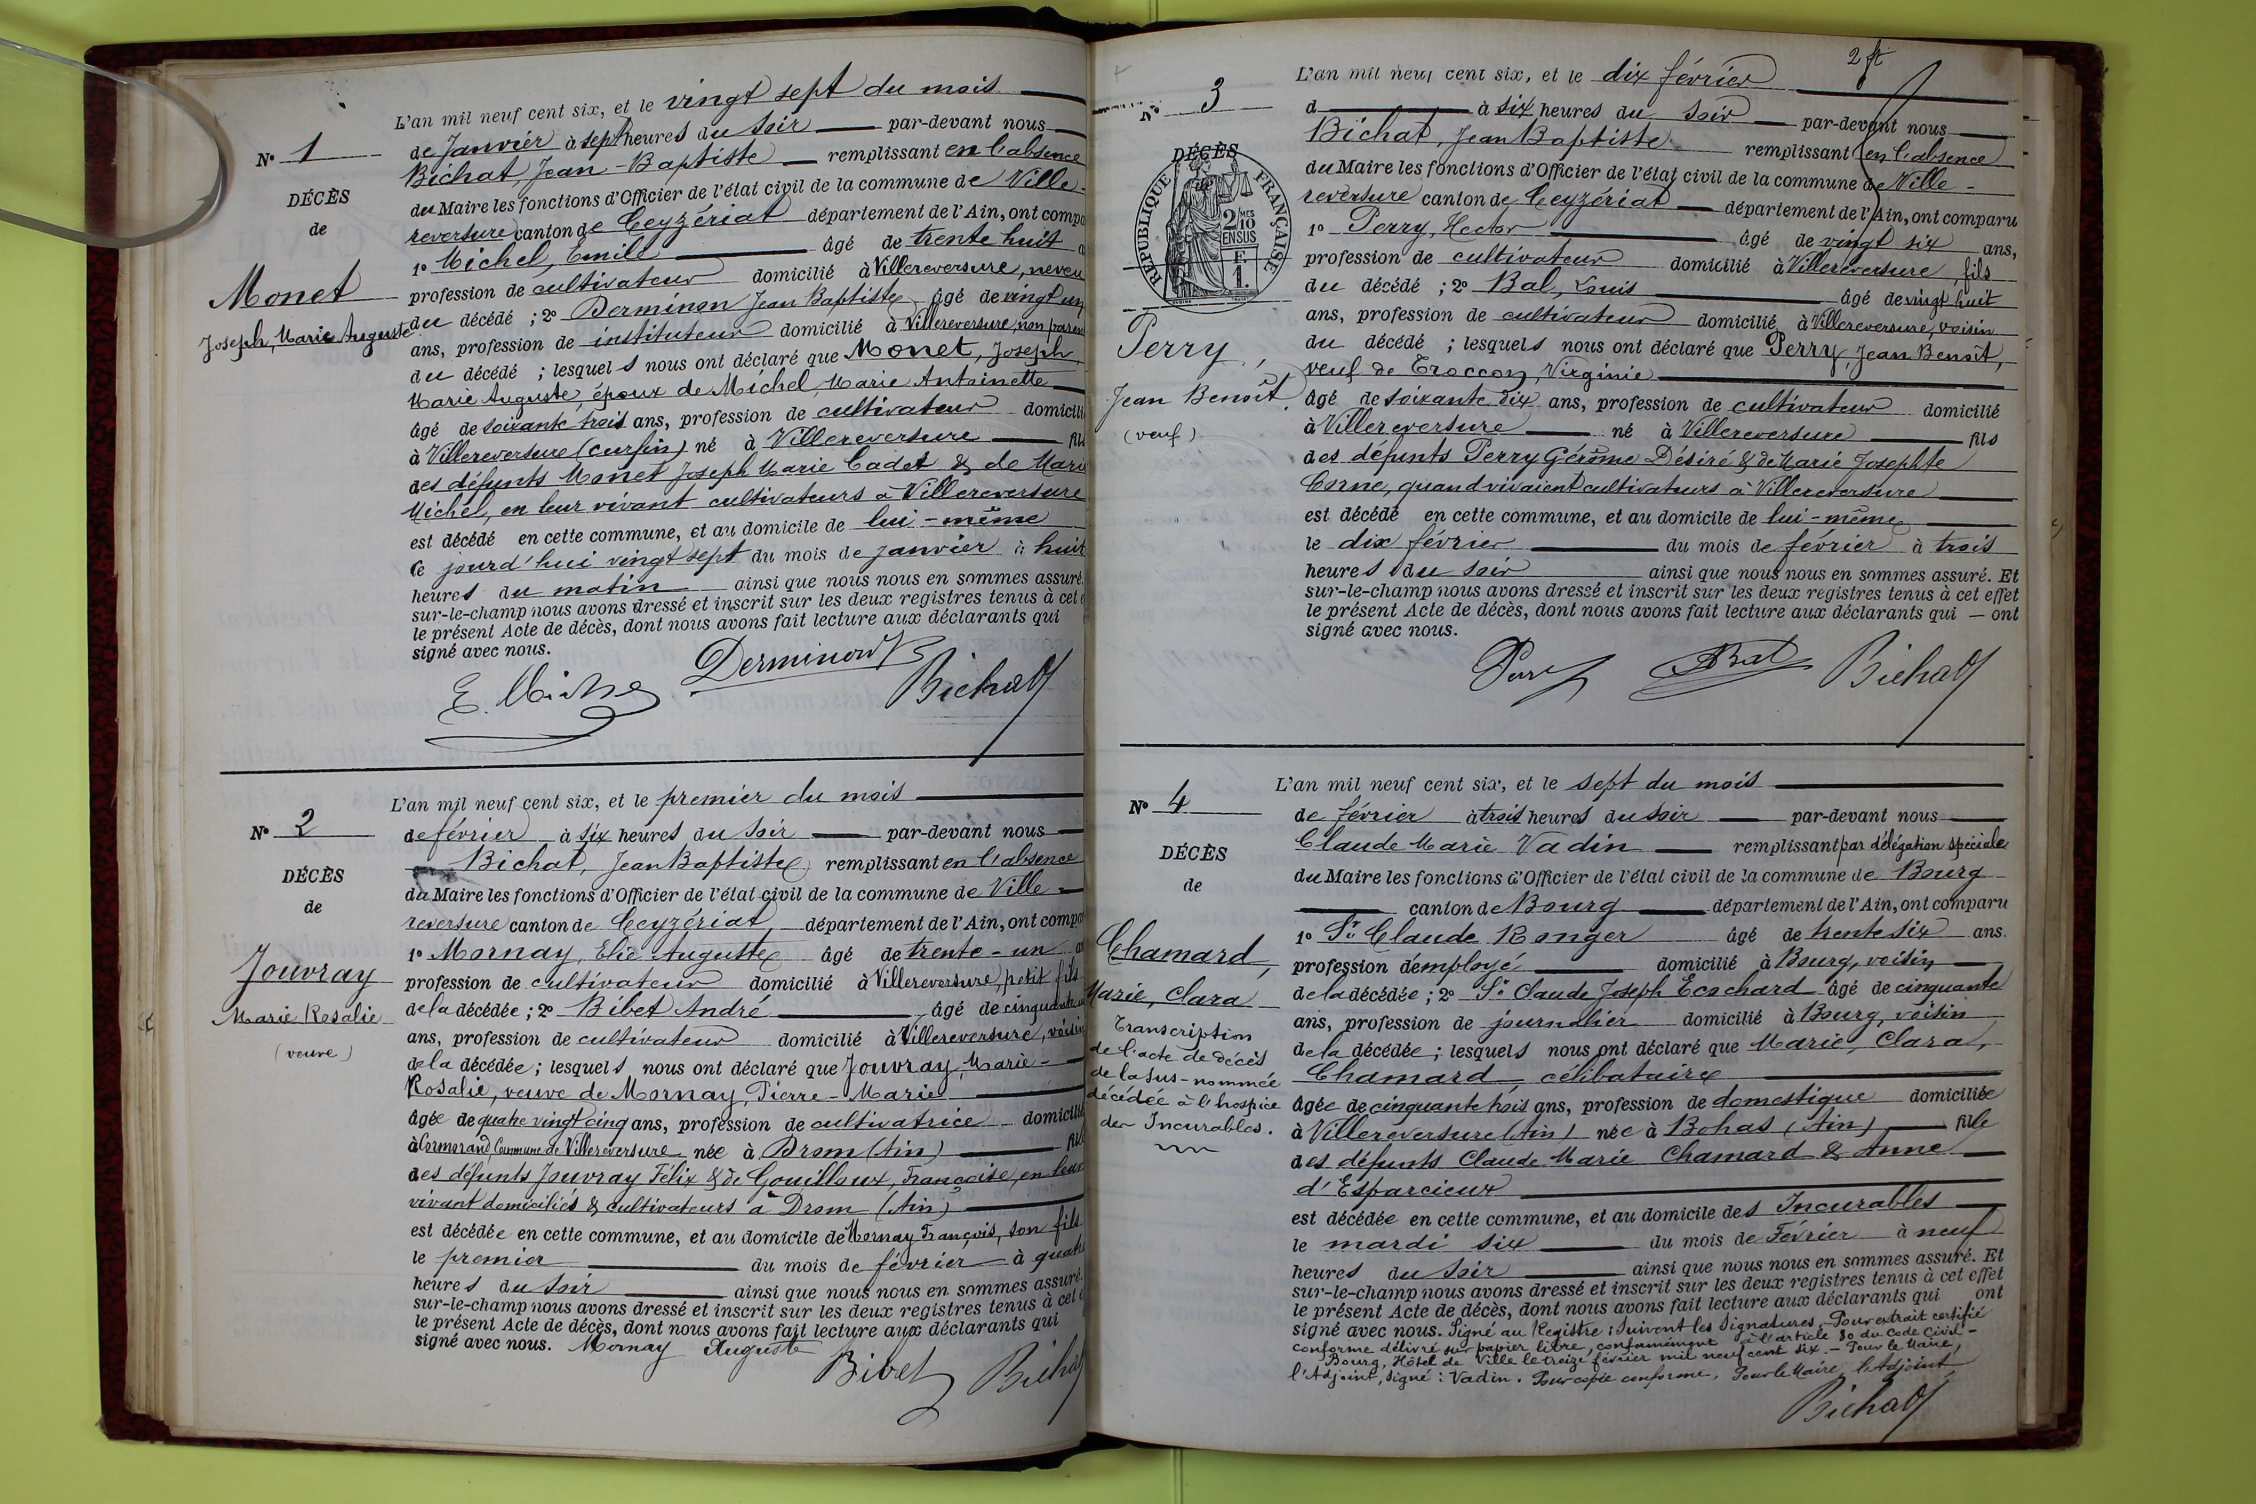 L'an mil neuf cent six, et le vingt sept du mois
N° 1
de Janvier à sept heures du soir par-devant nous
Bichat, Jean-Baptiste remplissant en l'absence
DÉCÈS
du Maire les fonctions d'Officier de l'état civil de la commune de Ville-
de
reversure canton de Ceyzériat département de l'Ain, ont compa
1° Michel, Emile âgé de trente huit a
Monet
profession de cultivateur domicilié à Villereversure, neveu
Joseph, Marie Auguste
du décédé ; 2° Derminon Jean Baptiste âgé de vingt un
ans, profession de instituteur domicilié à Villereversure, non paren
du décédé ; lesquels nous ont déclaré que Monet, Joseph,
Marie Auguste, époux de Michel, Marie Antoinette
âgé de soixante trois ans, profession de cultivateur domicili
à Villereversure (Curfin) né à Villereversure fils
des défunts Monet Joseph Marie Cadet & de Marie
Michel, en leur vivant cultivateurs à Villereversure
est décédé en cette commune, et au domicile de lui-même
ce jourd'hui vingt sept du mois de janvier à huit
heures du matin ainsi que nous nous en sommes assuré.
sur-le-champ nous avons dressé et inscrit sur les deux registres tenus à cet e
le présent Acte de décès, dont nous avons fait lecture aux déclarants qui
signé avec nous.
E. Michel Derminon Bichat
L'an mil neuf cent six, et le premier du mois
N° 2
de février à six heures du soir par-devant nous
Bichat, Jean Baptiste remplissant en l'absence
DÉCÈS
du Maire les fonctions d'Officier de l'état civil de la commune de Ville-
de
reversure canton de Ceyzériat, département de l'Ain, ont compa
1° Mornay, Elie Auguste âgé de trente-un an
Jouvray
profession de cultivateur domicilié à Villereversure, petit fils
Marie Rosalie
de la décédée ; 2° Bibet André âgé de cinquante
(veuve)
ans, profession de cultivateur domicilié à Villereversure, voisin
de la décédée ; lesquels nous ont déclaré que Jouvray, Marie-
Rosalie, veuve de Mornay, Pierre-Marie
âgée de quatre vingt cinq ans, profession de cultivatrice domicilié
à Cormorand Commune de Villereversure née à Drom (Ain) fille
des défunts Jouvray Félix & de Gouilloux, Françoise, en leur
vivant domiciliés & cultivateurs à Drom (Ain)
est décédée en cette commune, et au domicile de Mornay François, son fils
le premier du mois de février à quatre
heures du soir ainsi que nous nous en sommes assuré.
sur-le-champ nous avons dressé et inscrit sur les deux registres tenus à cet e
le présent Acte de décès, dont nous avons fait lecture aux déclarants qui
signé avec nous. Mornay Auguste
Bibet Bichat
2 ft
L'an mil neuf cent six, et le dix février
N° 3
d à six heures du soir par-devant nous
Bichat, Jean Baptiste remplissant en l'absence
DÉCÈS
de
RÉPUBLIQUE FRANÇAISE
2 MES
10
EN SUS
F.
1.
du Maire les fonctions d'Officier de l'état civil de la commune de Ville-
reversure canton de Ceyzériat département de l'Ain, ont comparu
1° Perry, Hector âgé de vingt six ans,
profession de cultivateur domicilié à Villereversure, fils
du décédé ; 2° Bal, Louis âgé de vingt huit
ans, profession de cultivateur domicilié à Villereversure, voisin
Perry,
du décédé ; lesquels nous ont déclaré que Perry, Jean Benoît,
veuf de Troccon, Virginie
Jean Benoît
âgé de soixante dix ans, profession de cultivateur domicilié
(veuf)
à Villereversure né à Villereversure fils
des défunts Perry Gérôme Désiré & de Marie Josephte
Corne, quand vivaient cultivateurs à Villereversure
est décédé en cette commune, et au domicile de lui-même
le dix février du mois de février à trois
heures du soir ainsi que nous nous en sommes assuré. Et
sur-le-champ nous avons dressé et inscrit sur les deux registres tenus à cet effet
le présent Acte de décès, dont nous avons fait lecture aux déclarants qui — ont
signé avec nous.
Perry Bal Bichat
L'an mil neuf cent six, et le sept du mois
N° 4
de février à trois heures du soir par-devant nous
Claude Marie Vadin remplissant par délégation spéciale
DÉCÈS
du Maire les fonctions d'Officier de l'état civil de la commune de Bourg
de
canton de Bourg département de l'Ain, ont comparu
1° Sr. Claude Ronger âgé de trente six ans.
Chamard,
profession d'employé domicilié à Bourg, voisin
Marie, Clara
de la décédée ; 2° Sr. Claude Joseph Ecochard âgé de cinquante
ans, profession de journalier domicilié à Bourg, voisin
Transcription
de l'acte de décès
de la sus-nommée
décédée à l'hospice
des Incurables.
de la décédée ; lesquels nous ont déclaré que Marie, Clara,
Chamard, célibataire
âgée de cinquante trois ans, profession de domestique domiciliée
à Villereversure (Ain) née à Bohas (Ain) fille
des défunts Claude Marie Chamard & Anne
d'Esparcieux
est décédée en cette commune, et au domicile des Incurables
le mardi six du mois de Février à neuf
heures du soir ainsi que nous nous en sommes assuré. Et
sur-le-champ nous avons dressé et inscrit sur les deux registres tenus à cet effet
le présent Acte de décès, dont nous avons fait lecture aux déclarants qui ont
signé avec nous. Signé au Registre : Suivent les Signatures. Pour extrait certifié
conforme délivré sur papier libre, conformément à l'article 80 du Code Civil-
Bourg, Hôtel de Ville le treize février mil neuf cent six. - Pour le Maire,
l'Adjoint, signé : Vadin. Pour copie conforme, Pour le Maire, l'Adjoint,
Bichat